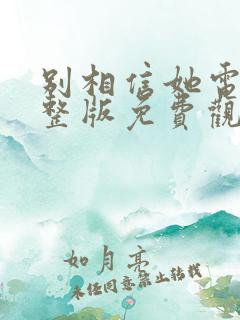 别相信她電
整版免費觀
如月亮
未经同意禁止转载